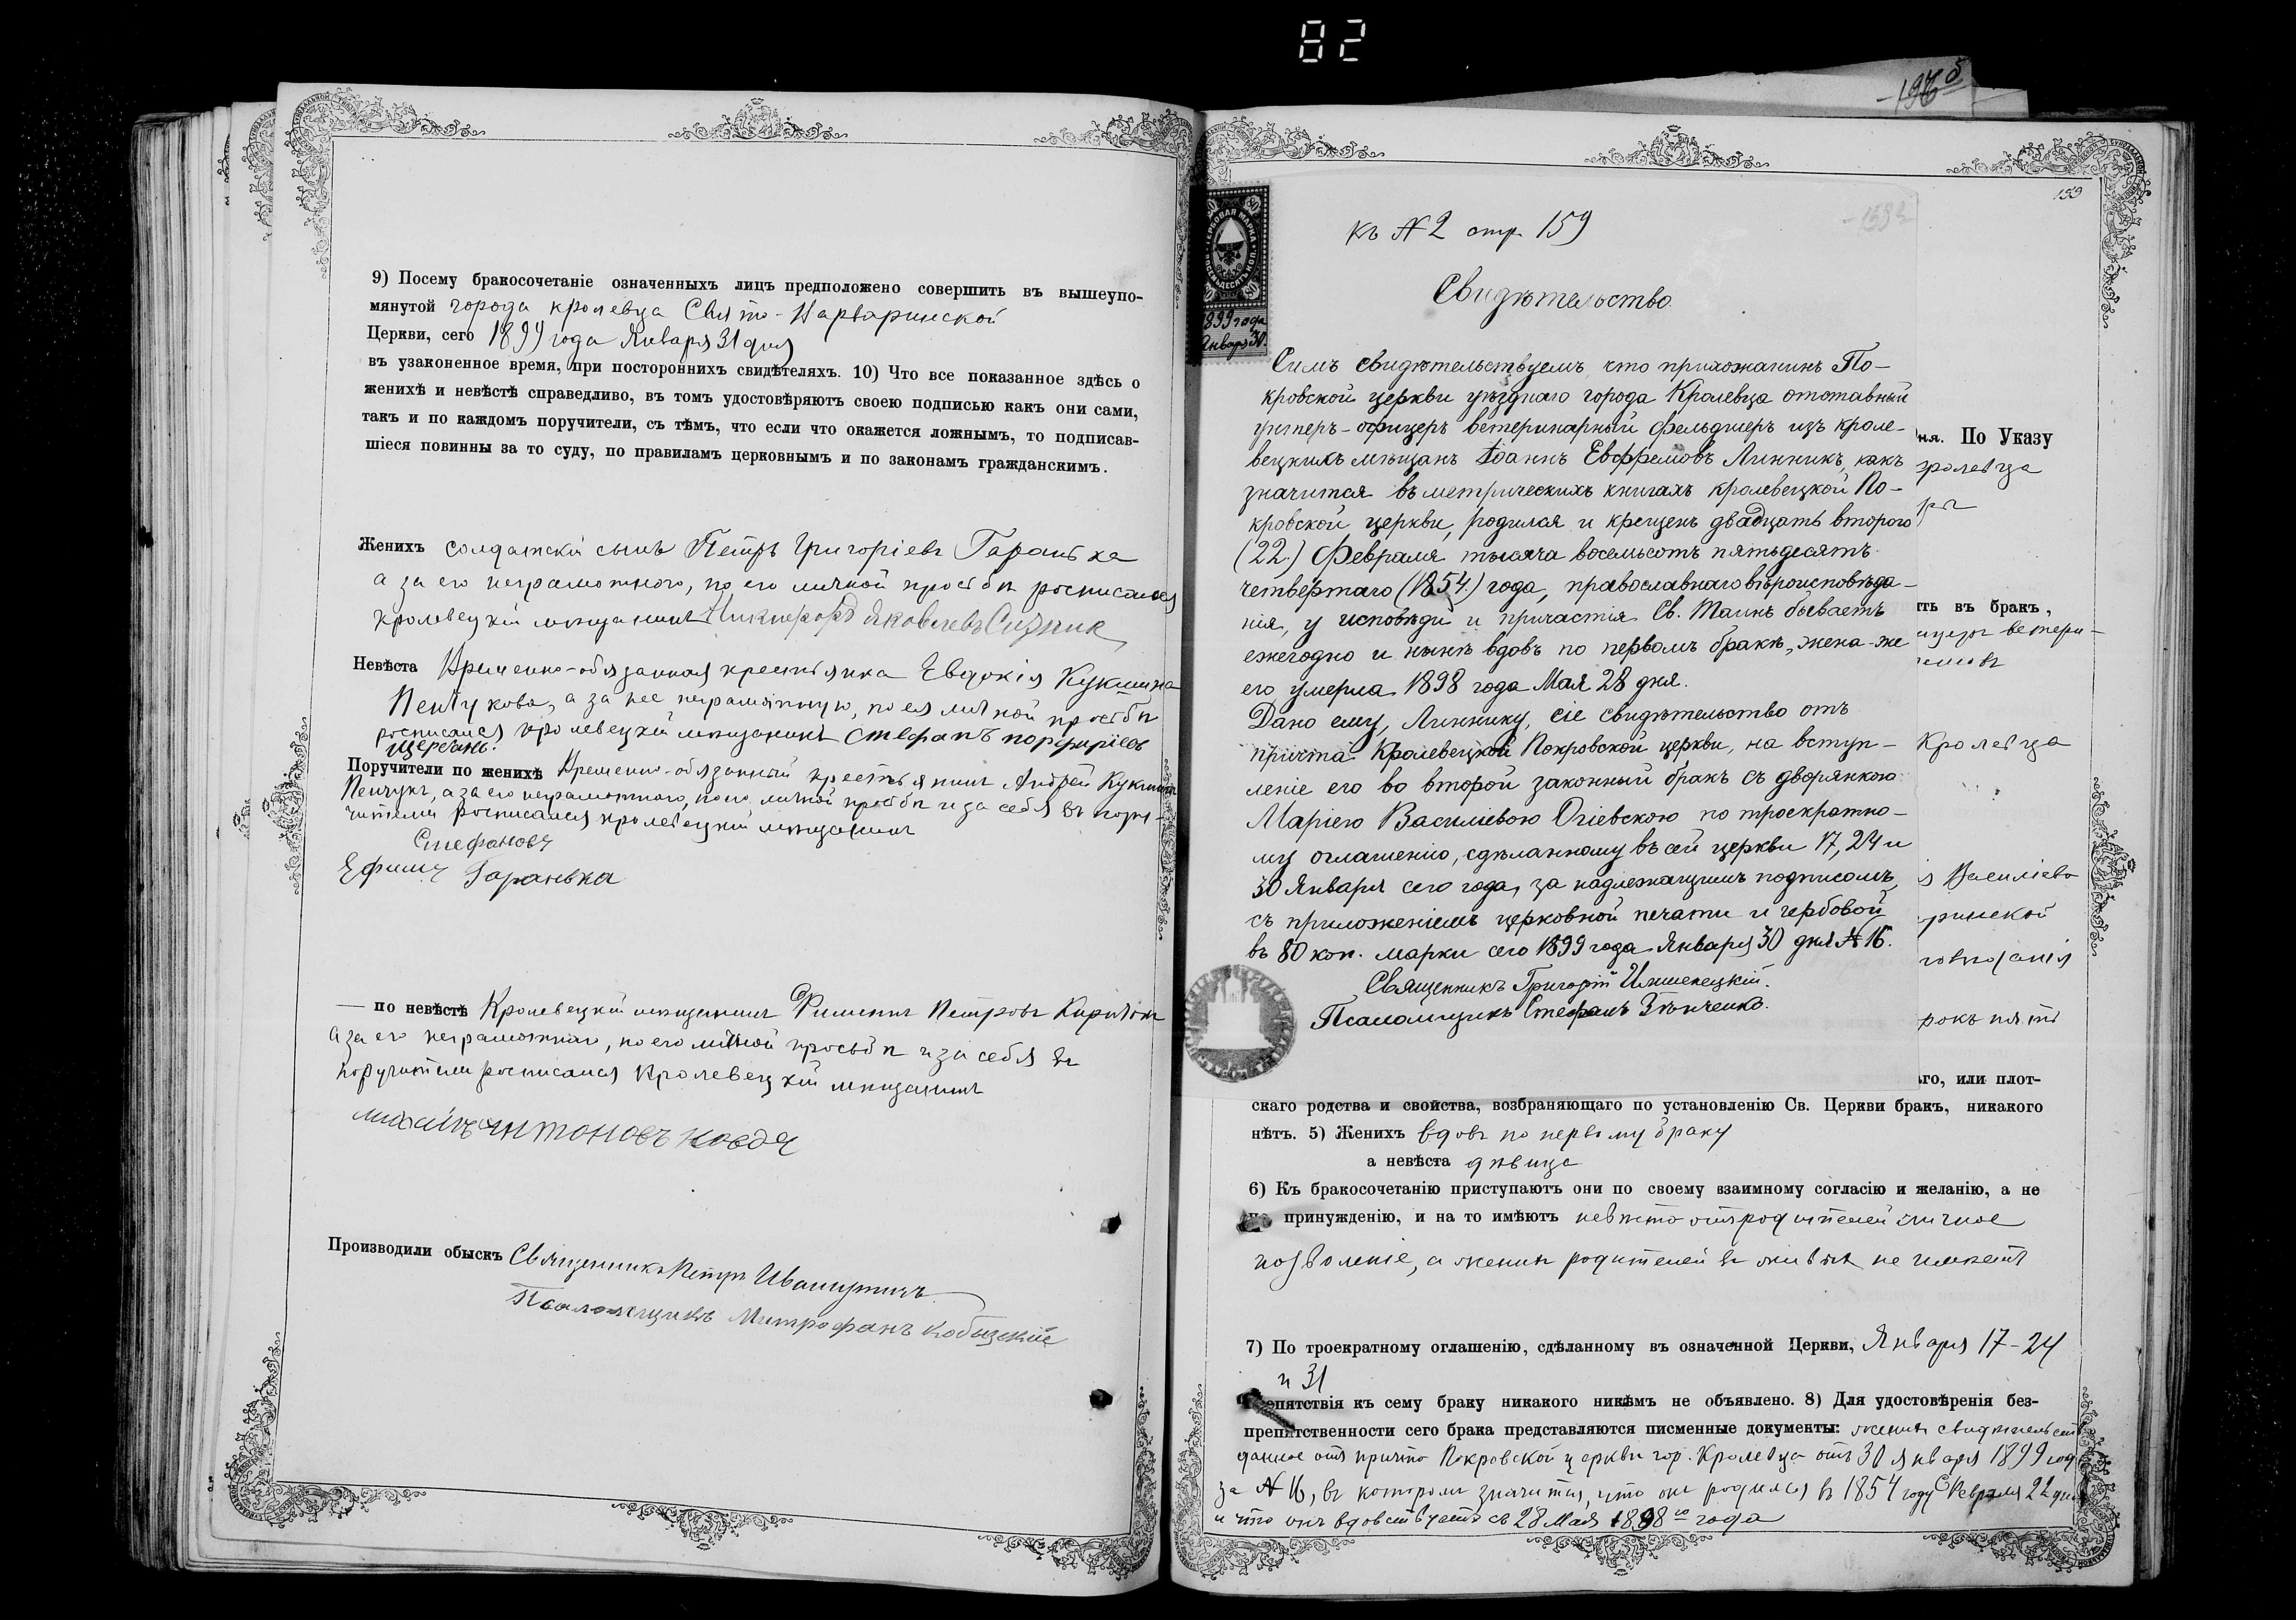 82
9) Посему бракосочетаніе означенныхъ лицъ предположено совершить въ вышеупо-
мянутой города Кролевца Свято-Варваринской
Церкви, сего 1899 года Января 31 дня
въ узаконенное время, при постороннихъ свидѣтеляхъ. 10) Что все показанное здѣсь о
женихѣ и невѣстѣ справедливо, въ томъ удостовѣряютъ своею подписью какъ они сами,
такъ и по каждомъ поручители, съ тѣмъ, что если что окажется ложнымъ, то подписав-
шіеся повинны за то суду, по правиламъ церковнымъ и по законамъ гражданскимъ.
Женихъ солдатскій сынъ Петръ Григоріевъ Гаранька
а за его неграмотного, по его личной просьбѣ росписался
кролевецкій мѣщанинъ Никифоръ Яковлевъ
Невѣста Временно-обязанная крестьянка Евдокія
а за нее неграмотную, по ея личной просьбѣ
росписался кролевецкій мѣщанинъ Стефанъ порфиріевъ
Щербань.
Поручители по женихѣ Временно-обязанный крестьянинъ Андрей
а за его неграмотного, по его личной просьбѣ и за себя въ пору-
чители росписался кролевецкій мѣщанинъ
Стефановъ
Ефимъ Гаранька
— по невѣстѣ Кролевецкій мѣщанинъ Филиппъ Петровъ
а за его неграмотнаго, по его личной просьбѣ и за себя въ
поручители росписался Кролевецкій мѣщанинъ
михаилъ антоновъ
Производили обыскъ Священникъ Петръ
Псаломщикъ Митрофанъ
159
къ № 2 стр. 159
ГЕРБОВАЯ МАРКА
ВОСЕМЬДЕСЯТЬ КОП.
80
1899 года
Января 30.
Свидѣтельство.
Симъ свидѣтельствуемъ, что прихожанинъ По-
кровской церкви уѣзднаго города Кролевца отставный
унтеръ-офицеръ ветеринарный фельдшеръ изъ кроле-
вецкихъ мѣщанъ Іоаннъ Евфремовъ Линникъ, какъ
значится въ метрическихъ книгахъ кролевецкой По-
кровской церкви, родился и крещенъ двадцать второго
(22.) Февраля тысяча восемьсотъ пятьдесятъ
четвертаго (1854.) года, православнаго вѣроисповѣда-
нія, у исповѣди и причастія Св. Таинъ бываетъ
ежегодно и нынѣ вдовъ по первомъ бракѣ, жена-же
его умерла 1898 года Мая 28 дня.
Дано ему, Линнику, сіе свидѣтельство отъ
причта Кролевецкой Покровской церкви, на вступ-
леніе его во второй законный бракъ съ дворянкою
Маріею Василіевою Огіевскою по троекратно-
му оглашенію, сдѣланному въ сей церкви 17, 24 и
30 Января сего года, за надлежащимъ подписомъ,
съ приложеніемъ церковной печати и гербовой
въ 80 коп. марки сего 1899 года Января 30 дня № 16.
Священникъ Григорій
Псаломщикъ Стефанъ
ня. По Указу
ть въ бракъ,
ветери-
Кролевца
Василіева
ринской
рокъ пять
го, или плот-
скаго родства и свойства, возбраняющаго по установленію Св. Церкви бракъ, никакого
нѣтъ. 5) Женихъ вдовъ по первому браку
а невѣста дѣвица
6) Къ бракосочетанію приступаютъ они по своему взаимному согласію и желанію, а не
принужденію, и на то имѣютъ невѣста отъ родителей личное
позволеніе, а женихъ родителей въ живыхъ не имѣетъ
7) По троекратному оглашенію, сдѣланному въ означенной Церкви, Января 17-24
и 31
епятствія къ сему браку никакого никѣмъ не объявлено. 8) Для удостовѣренія без-
препятственности сего брака представляются писменные документы: жениха свидѣтельст
данное отъ причта Покровской церкви гор. Кролевца отъ 30 января 1899 год
за № 16, въ которомъ значится, что онъ родился въ 1854 году Февраля 22 дня
и что онъ вдовствуетъ съ 28 Мая 1898го года